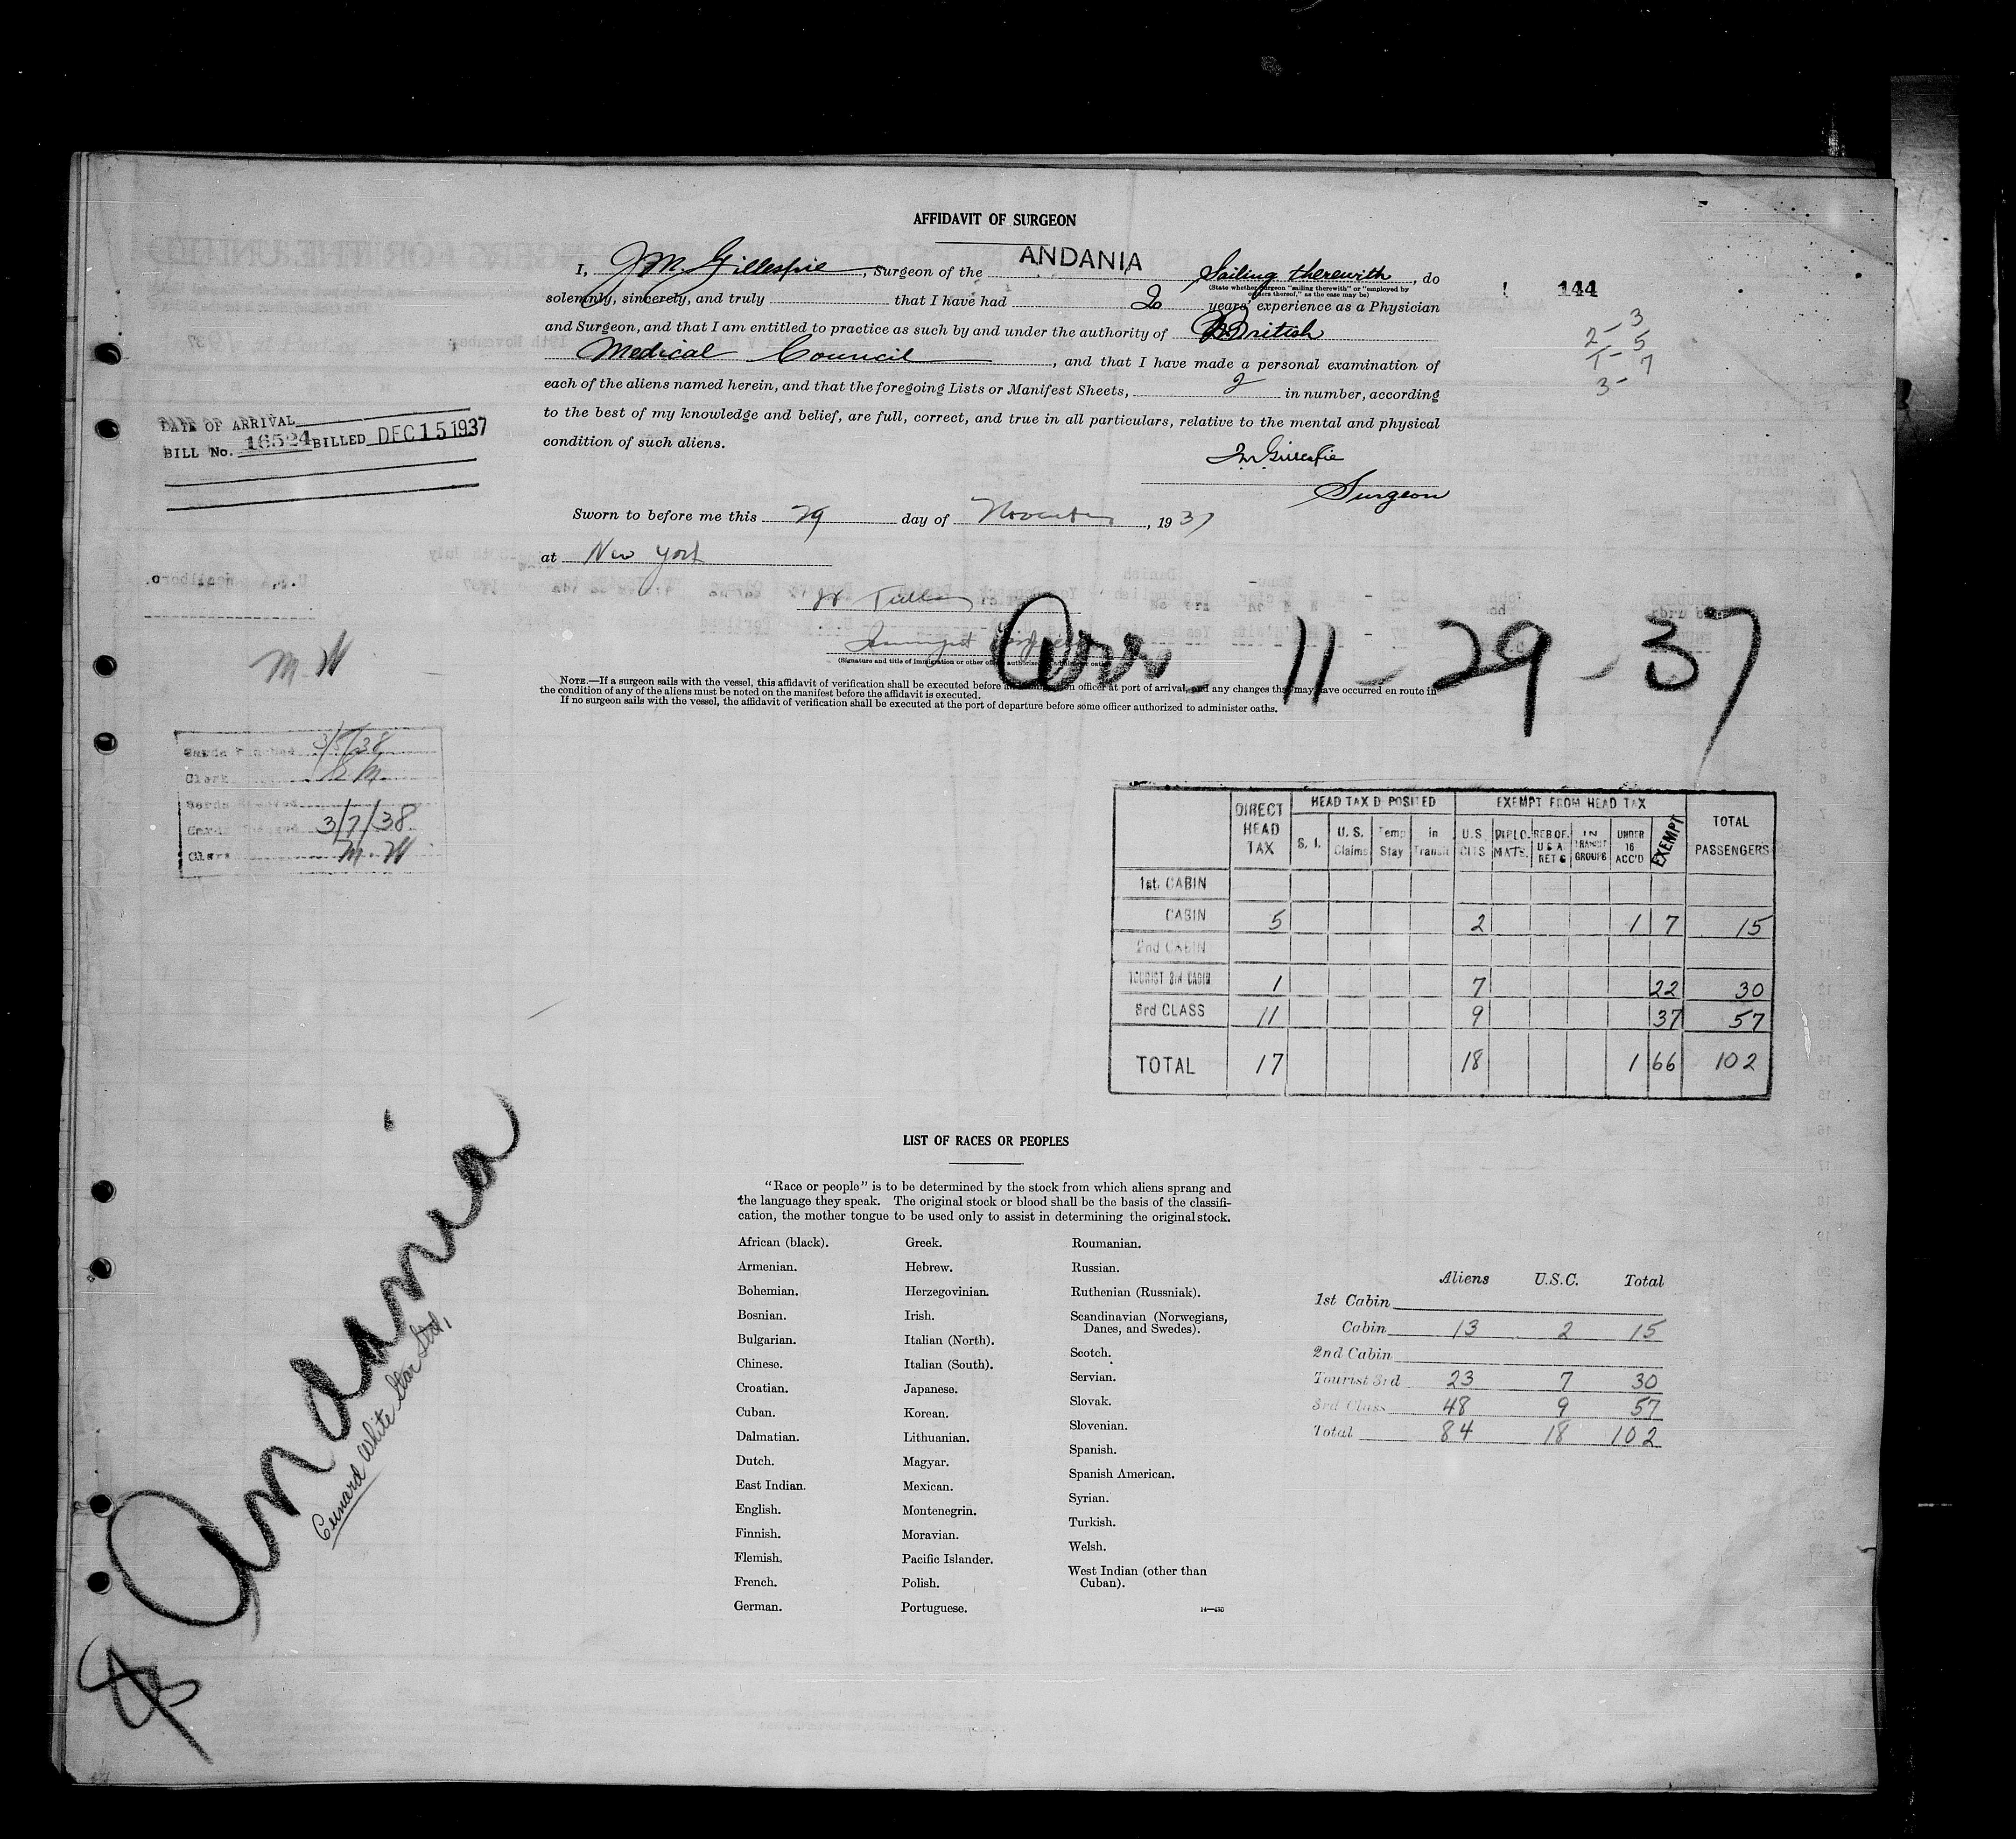 AFFIDAVIT OF SURGEON
I, J.M. Gillespie, Surgeon of the ANDANIA Sailing therewith, do
(State whether Surgeon "sailing therewith" or "employed by owners thereof," as the case may be)
144
solemnly, sincerely, and truly that I have had 2 years' experience as a Physician
and Surgeon, and that I am entitled to practice as such by and under the authority of British
Medical Council, and that I have made a personal examination of
each of the aliens named herein, and that the foregoing Lists or Manifest Sheets, 2 in number, according
to the best of my knowledge and belief, are full, correct, and true in all particulars, relative to the mental and physical
condition of such aliens.
2 - 3
1 - 5
3 - 7
DATE OF ARRIVAL
BILL No. 16524 BILLED DEC 15 1937
JM Gillespie
Surgeon
Sworn to before me this 29 day of November, 1937
at New York
(Signature and title of immigration or other officer authorized to administer oaths)
Arr - 11 - 29 - 37
M.W
NOTE.—If a surgeon sails with the vessel, this affidavit of verification shall be executed before an immigration officer at port of arrival, and any changes that may have occurred en route in
the condition of any of the aliens must be noted on the manifest before the affidavit is executed.
If no surgeon sails with the vessel, the affidavit of verification shall be executed at the port of departure before some officer authorized to administer oaths.
3/5/38
Clerk
3/7/38
Clerk M.W
DIRECT HEAD TAX HEAD TAX DEPOSITED EXEMPT FROM HEAD TAX TOTAL PASSENGERS
S. I. U. S. Claims Temp Stay in Transit U.S. CITS DIPLO-MATS. RES OF. U S A RET G IN TRANSIT GROUPS UNDER 16 ACC'D EXEMPT
1st. CABIN
CABIN 5 2 1 7 15
2nd CABIN
TOURIST 3rd CABIN 1 7 22 30
3rd CLASS 11 9 37 57
TOTAL 17 18 1 66 102
Andania
Cunard White Star Ltd,
LIST OF RACES OR PEOPLES
"Race or people" is to be determined by the stock from which aliens sprang and
the language they speak. The original stock or blood shall be the basis of the classifi-
cation, the mother tongue to be used only to assist in determining the original stock.
African (black).
Armenian.
Bohemian.
Bosnian.
Bulgarian.
Chinese.
Croatian.
Cuban.
Dalmatian.
Dutch.
East Indian.
English.
Finnish.
Flemish.
French.
German.
Greek.
Hebrew.
Herzegovinian.
Irish.
Italian (North).
Italian (South).
Japanese.
Korean.
Lithuanian.
Magyar.
Mexican.
Montenegrin.
Moravian.
Pacific Islander.
Polish.
Portuguese.
Roumanian.
Russian.
Ruthenian (Russniak).
Scandinavian (Norwegians,
Danes, and Swedes).
Scotch.
Servian.
Slovak.
Slovenian.
Spanish.
Spanish American.
Syrian.
Turkish.
Welsh.
West Indian (other than
Cuban).
Aliens U.S.C. Total
1st Cabin
Cabin 13 2 15
2nd Cabin
Tourist 3rd 23 7 30
3rd Class 48 9 57
Total 84 18 102